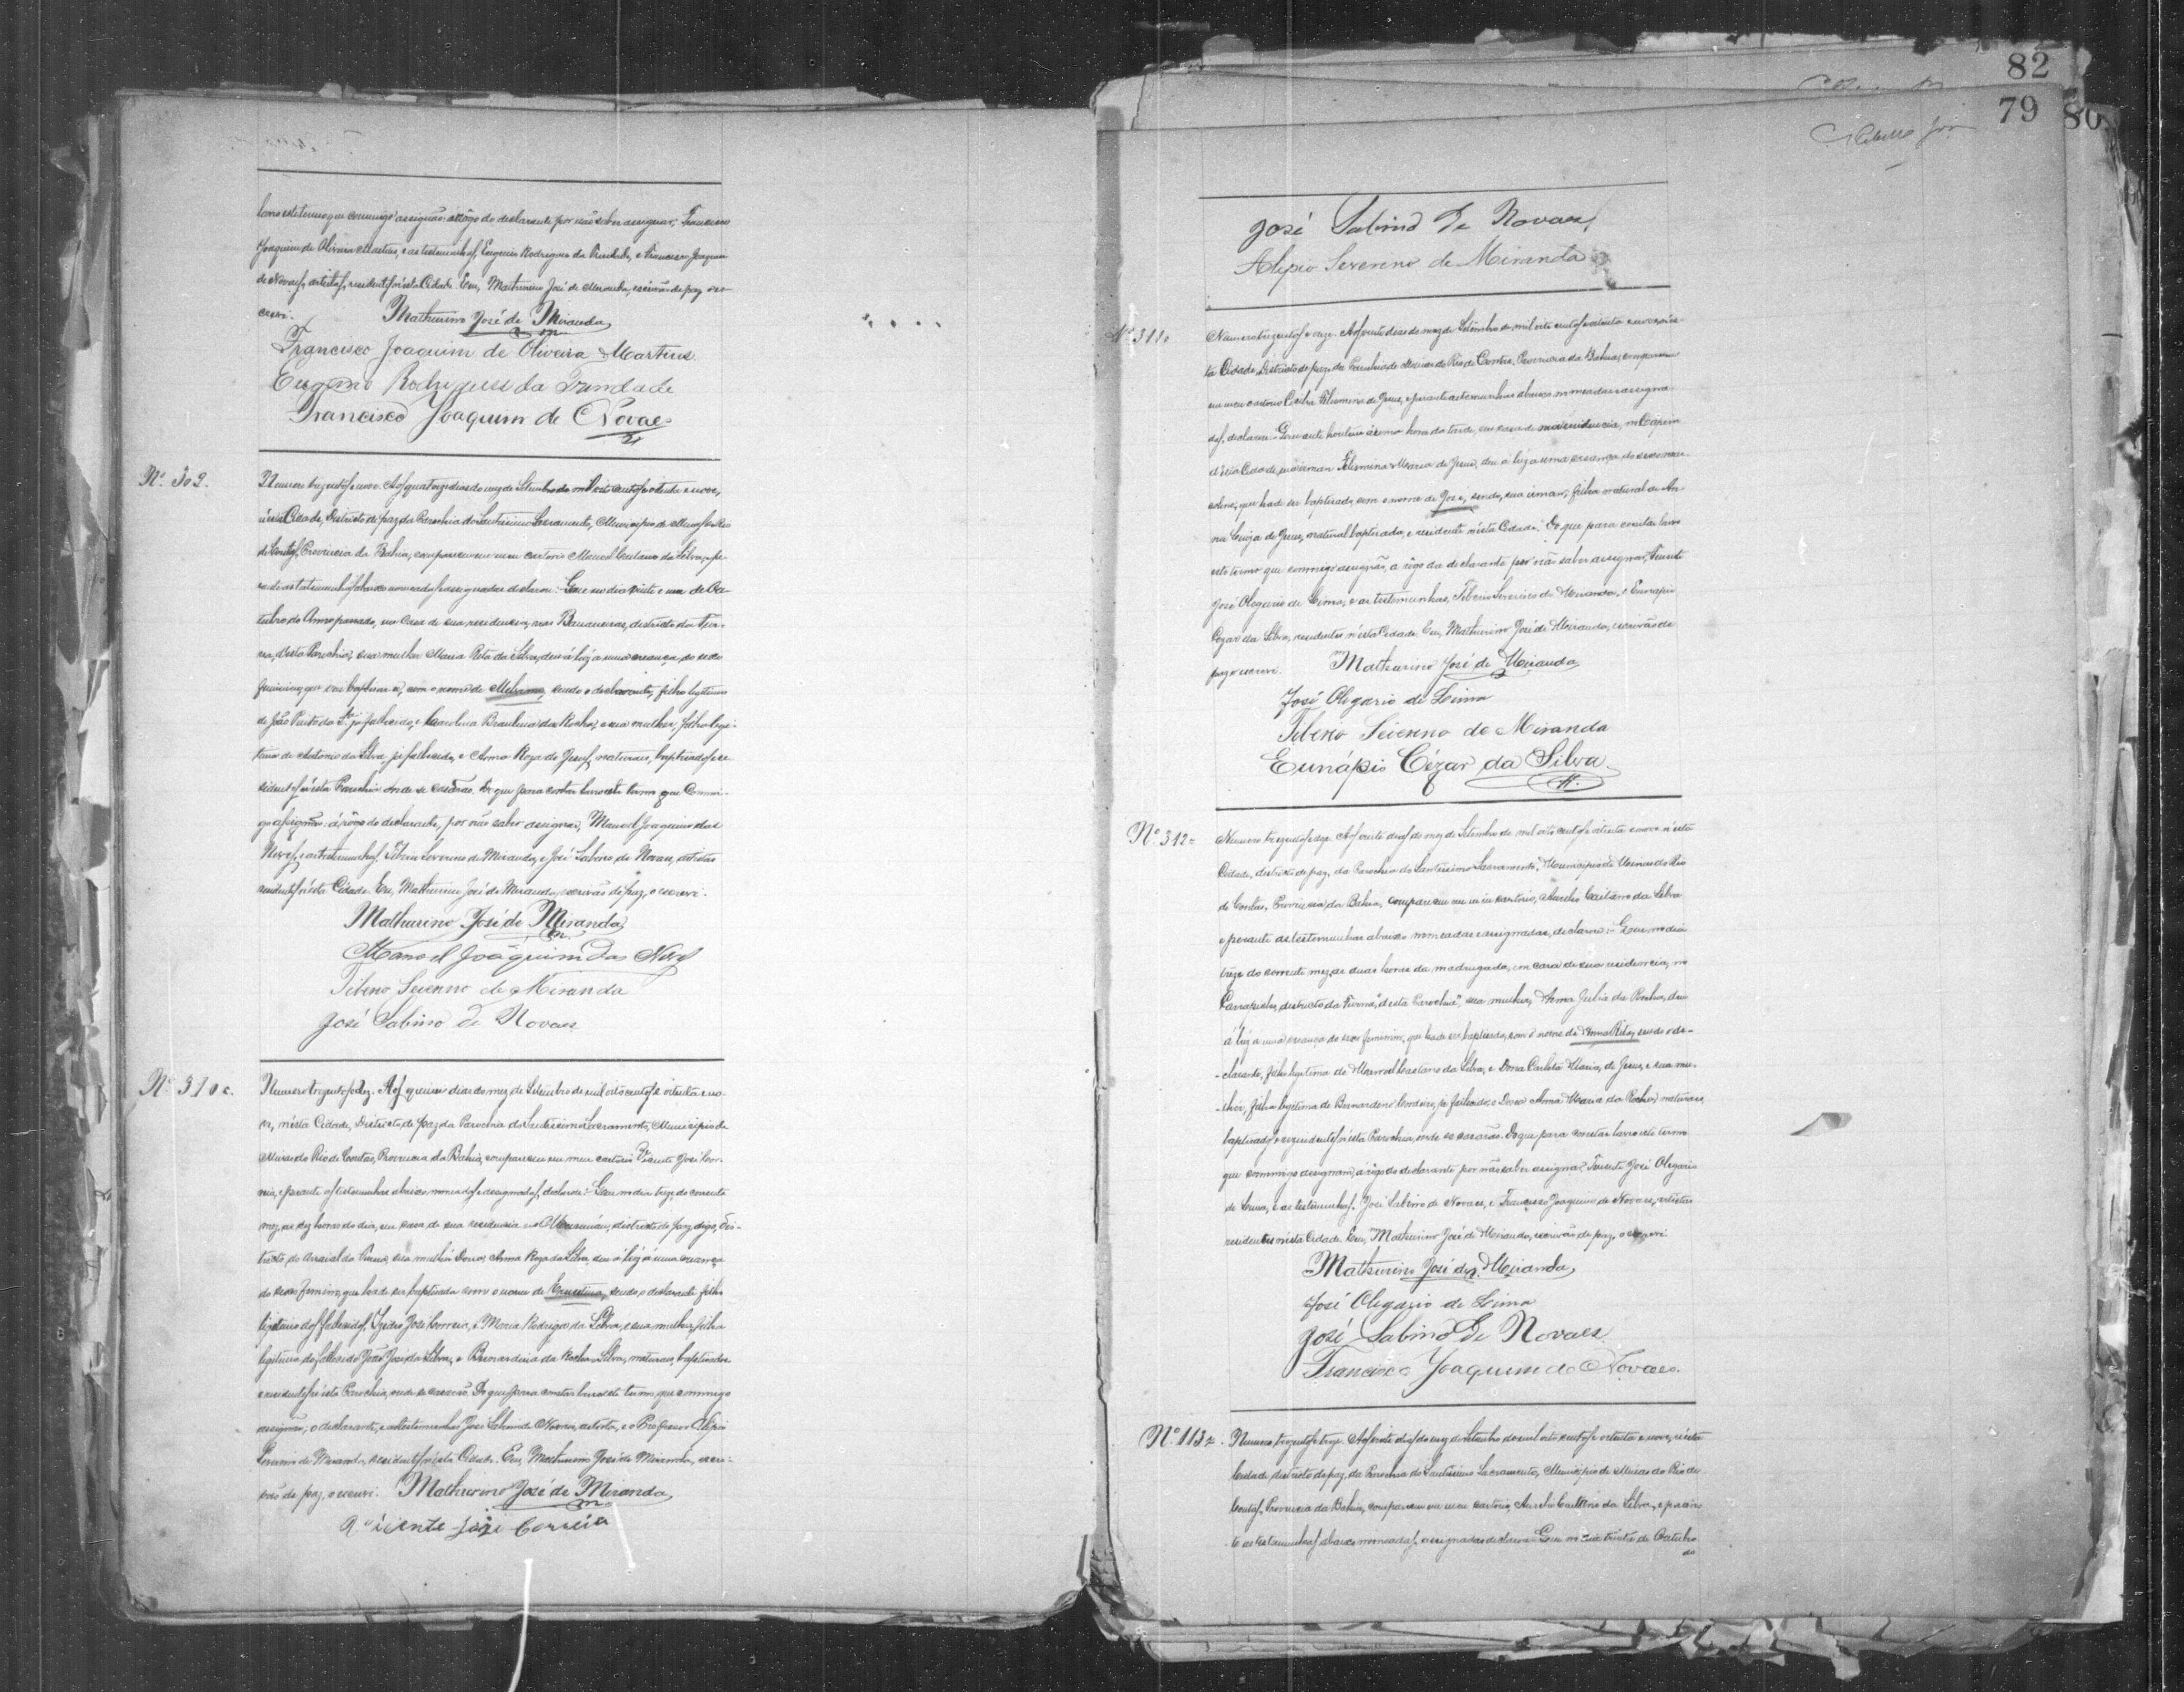 vro este termo que commigo assignão: a rôgo do declarante por não saber assignar, Francisco
Joaquim de Oliveira Martins, e as testemunhas, Eugenio Rodrigues da Trindade, e Francisco Joaquim
de Novaes, artistas, residentes n'esta Cidade. Eu, Mathurino José de Miranda, escrivão de paz o es-
crevi. Mathurino José de Miranda
Francisco Joaquim de Oliveira Martins
Eugenio Rodrigues da Trindade
Francisco Joaquim de Novaes
Nº 309.
Numero trezentos e nove. Aos quatorze dias do mez de Setembro de mil oito centos e oitenta e nove,
n'esta Cidade, Districto de paz da Parochia do Santissimo Sacramento, Municipio de Minas do Rio
de Contas, Provincia da Bahia, compareceu em meu cartorio Manoel Caetano da Silva, e pe-
rante as testemunhas abaixo nomeadas e assignadas declarou: Que no dia vinte e um de Ou-
tubro do Anno passado, em casa de sua residencia, nas districto da Fur-
na, d'esta Parochia, sua mulher Maria Rita da Silva, deu á luz a uma creança, do sexo
sendo o declarante, filho legitimo
de João já fallecido, e Carolina da Rocha, e sua mulher, filha legi-
tima de Antonio da Silva já fallecido, e Anna Roza de Jesus, naturaes, baptizados e re-
sidentes n'esta Parochia onde se casárão. Do que para constar lavro este termo que Commi-
go assignão: á rôgo do declarante, por não saber assignar, Manoel Joaquim das
Neves, e as testemunhas, Tiberio Severino de Miranda, e José Sabino de Novaes, artistas
residentes n'esta Cidade. Eu, Mathurino José de Miranda, escrivão de paz, o escrevi.
Mathurino José de Miranda
Manoel Joaquim das Neves
Tiberio Severino de Miranda
José Sabino de Novaes
Nº 310
Numero trezentos e dez. Aos quinze dias do mez de Setembro de mil oito centos e oitenta e no-
ve, n'esta Cidade, Districto de paz da Parochia do Santissimo Sacramento, Municipio de
Minas do Rio de Contas, Provincia da Bahia, compareceu em meu cartorio Vicente José Cor-
reia, e perante as testemunhas abaixo nomeadas e assignadas, declarou: Que no dia treze do corrente
mez, as dez horas do dia, em casa de sua residencia no districto de paz, digo, Dis-
tricto do arraial da Furna, sua mulher Dona Anna Roza da Silva deu á luz á uma creança
do sexo feminino, que hade ser baptizada com o nome de Ernestina, sendo o declarante filho
legitimo dos fallecidos, Izidro José Correia, e Maria Rodrigues da Silva, e sua mulher, filha
legitima do fallecido João José da Silva, e Bernardina da Rocha Silva, naturaes, baptizados
e residentes n'esta Parochia, onde se casárão. Do que para constar lavro este termo, que commigo
assignão, o declarante, e as testemunhas José Sabino de Novaes, artista, e o Professor Alipio
Severino de Miranda, residentes n'esta Cidade. Eu, Mathurino José de Miranda, escri-
vão de paz, o escrevi. Mathurino José de Miranda
Vicente José Correia
82
79 80
José Sabino de Novaes
Alipio Severino de Miranda
Nº 311
Numero trezentos e onze. Aos vinte dias do mez de Setembro de mil oito centos e oitenta e nove, n'es-
ta Cidade, Districto de paz, da Parochia de Minas do Rio de Contas, Provincia da Bahia, compareceu
em meu cartorio Cecilia Filomena de Jesus, e perante as testemunhas abaixo nomeadas e assigna-
das, declarou: Que ante hontem á uma hora da tarde, em casa de sua residencia,
d'esta Cidade, sua irman Maria de Jesus, deu a luz a uma creança do sexo mas-
culino, que hade ser baptizado com o nome de José, sendo, sua irman, filha natural de An-
na Luiza de Jesus, natural, baptizada, e residente n'esta Cidade. Do que para constar lavro
este termo que commigo assignão, a rôgo da declarante por não saber assignar, Tenente
José Olegario de Lima, e as testemunhas, Tiberio Severino de Miranda, e Eunapio
Cezar da Silva, residentes n'esta Cidade. Eu, Mathurino José de Miranda, escrivão de
paz o escrevi. Mathurino José de Miranda
José Olegario de Lima
Tiberio Severino de Miranda
Eunápio Cézar da Silva
Nº 312
Numero trezentos e doze. Aos vinte dias do mez de Setembro de mil oito centos e oitenta e nove n'esta
Cidade, districto de paz, da Parochia do Santissimo Sacramento, Municipio de Minas do Rio
de Contas, Provincia da Bahia, compareceu em meu cartorio, Aurelio Caetano da Silva
e perante as testemunhas abaixo nomeadas e assignadas, declarou: Que no dia
treze do corrente mez, as duas horas da madrugada, em casa de sua residencia, no
districto da Furna, d'esta Parochia, sua mulher, Anna Julia da Rocha, deu
á luz a uma creança do sexo feminino, que hade ser baptizada, com o nome de Anna Rita, sendo o de-
clarante, filho legitimo de Manoel Caetano da Silva, e Dona Carlota Maria de Jesus, e sua mu-
lher, filha legitima de Bernardino Cordeiro, já fallecido, e Dona Anna Maria da Rocha, naturaes,
baptizados e residentes n'esta Parochia, onde se casárão. Do que para constar lavro este termo
que commigo assignam, a rôgo do declarante por não saber assignar Tenente José Olegario
de Lima, e as testemunhas, José Sabino de Novaes, e Francisco Joaquim de Novaes, artistas
residentes n'esta Cidade. Eu, Mathurino José de Miranda, escrivão de paz, o escrevi.
Mathurino José de Miranda
José Olegario de Lima
José Sabino de Novaes
Francisco Joaquim de Novaes.
Nº 113
Numero trezentos e treze. Aos vinte dias do mez de Setembro de mil oito centos e oitenta e nove, n'esta
Cidade districto de paz, da Parochia do Santissimo Sacramento, Municipio de Minas do Rio de
Contas, Provincia da Bahia, compareceu em meu cartorio, Aurelio Caetano da Silva, e peran-
te as testemunhas abaixo nomeadas, e assignadas declarou: Que no dia trinta de Outubro
do